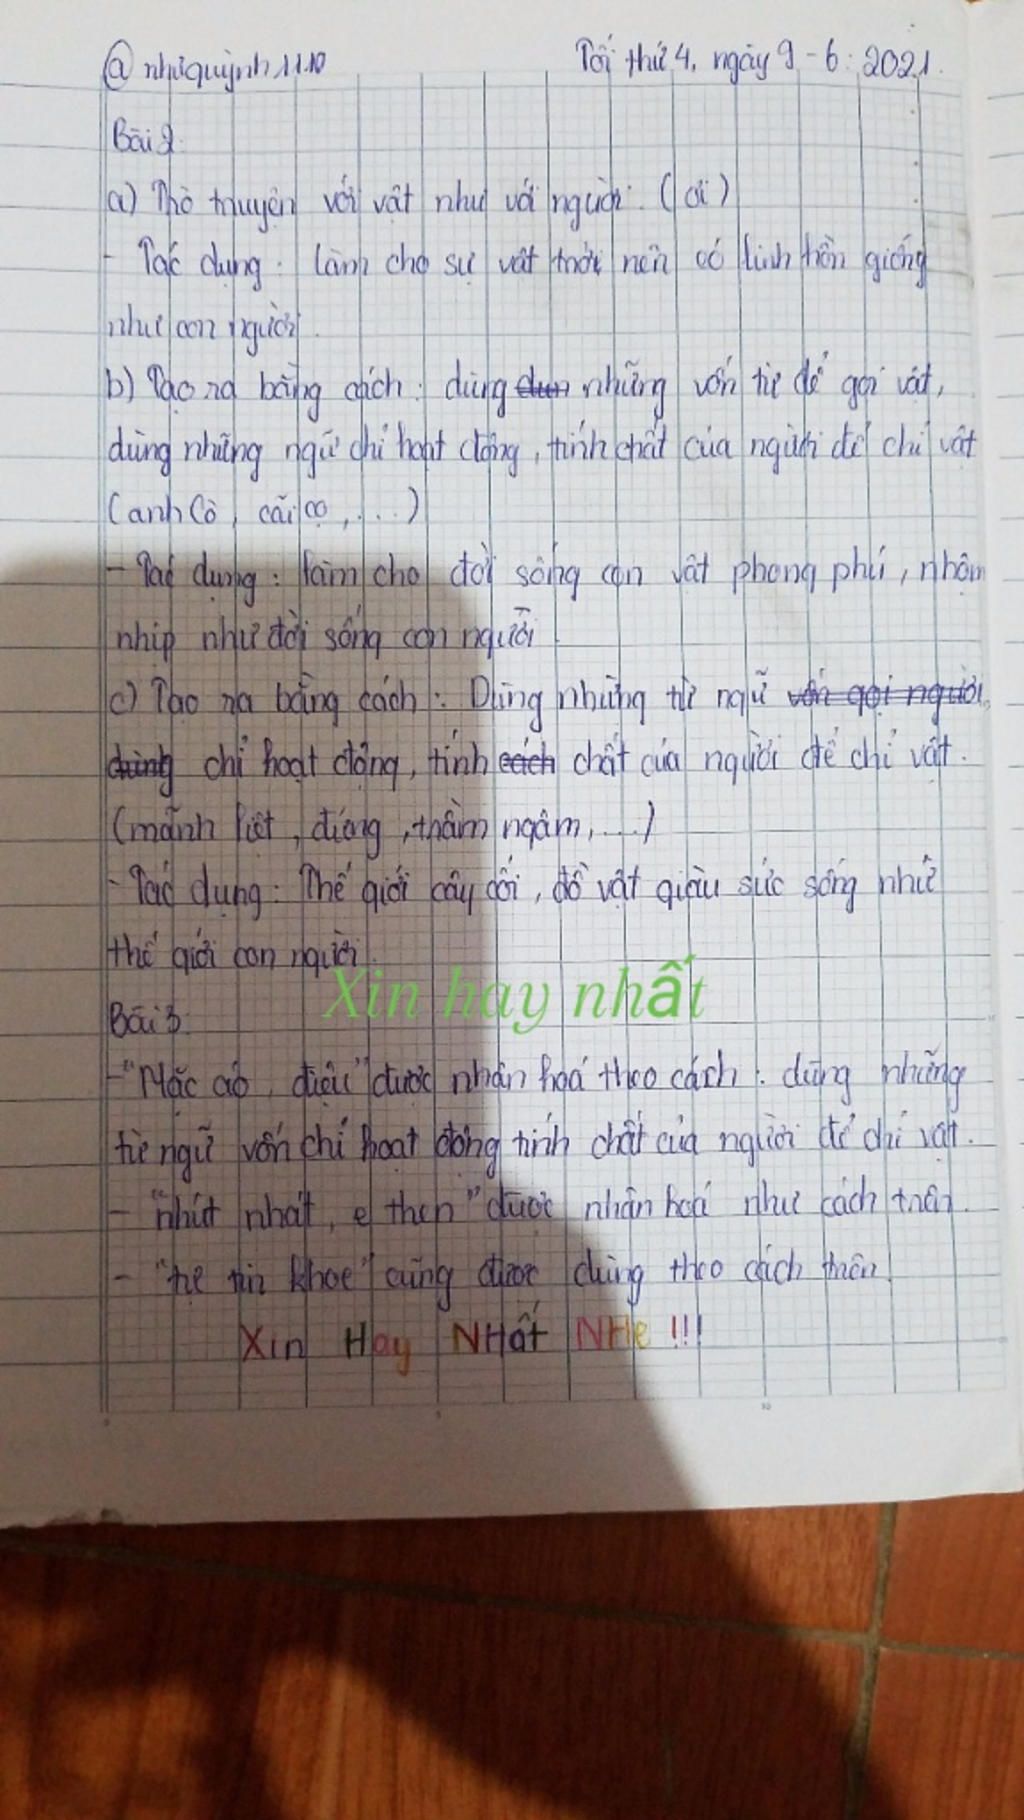 @nhuquỳnh1110 Tối thứ 4, ngày 9-6-2021.
Bài 2:
a) Trò truyện với vật như với người. (ơi)
- Tác dụng: làm cho sự vật trở nên có linh hồn giống
như con người.
b) Tạo ra bằng cách: dùng những vốn từ để gọi vật,
dùng những ngữ chỉ hoạt động, tính chất của người để chỉ vật
(anh Cò, cãi cọ,...)
- Tác dụng: làm cho đời sống con vật phong phú, nhộn
nhịp như đời sống con người.
c) Tạo ra bằng cách: Dùng những từ ngữ vốn gọi người,
dùng chỉ hoạt động, tính cách chất của người để chỉ vật.
(mãnh liệt, đứng, thầm ngâm,...)
- Tác dụng: Thế giới cây cối, đồ vật giàu sức sống như
thế giới con người.
Xin hay nhất
Bài 3:
- "Mặc áo, điệu" được nhân hoá theo cách: dùng những
từ ngữ vốn chỉ hoạt động tính chất của người để chỉ vật.
- "nhút nhát, e then" được nhân hoá như cách trên.
- khoe" cũng được dùng theo cách trên.
Xin Hay NHất NHé !!!